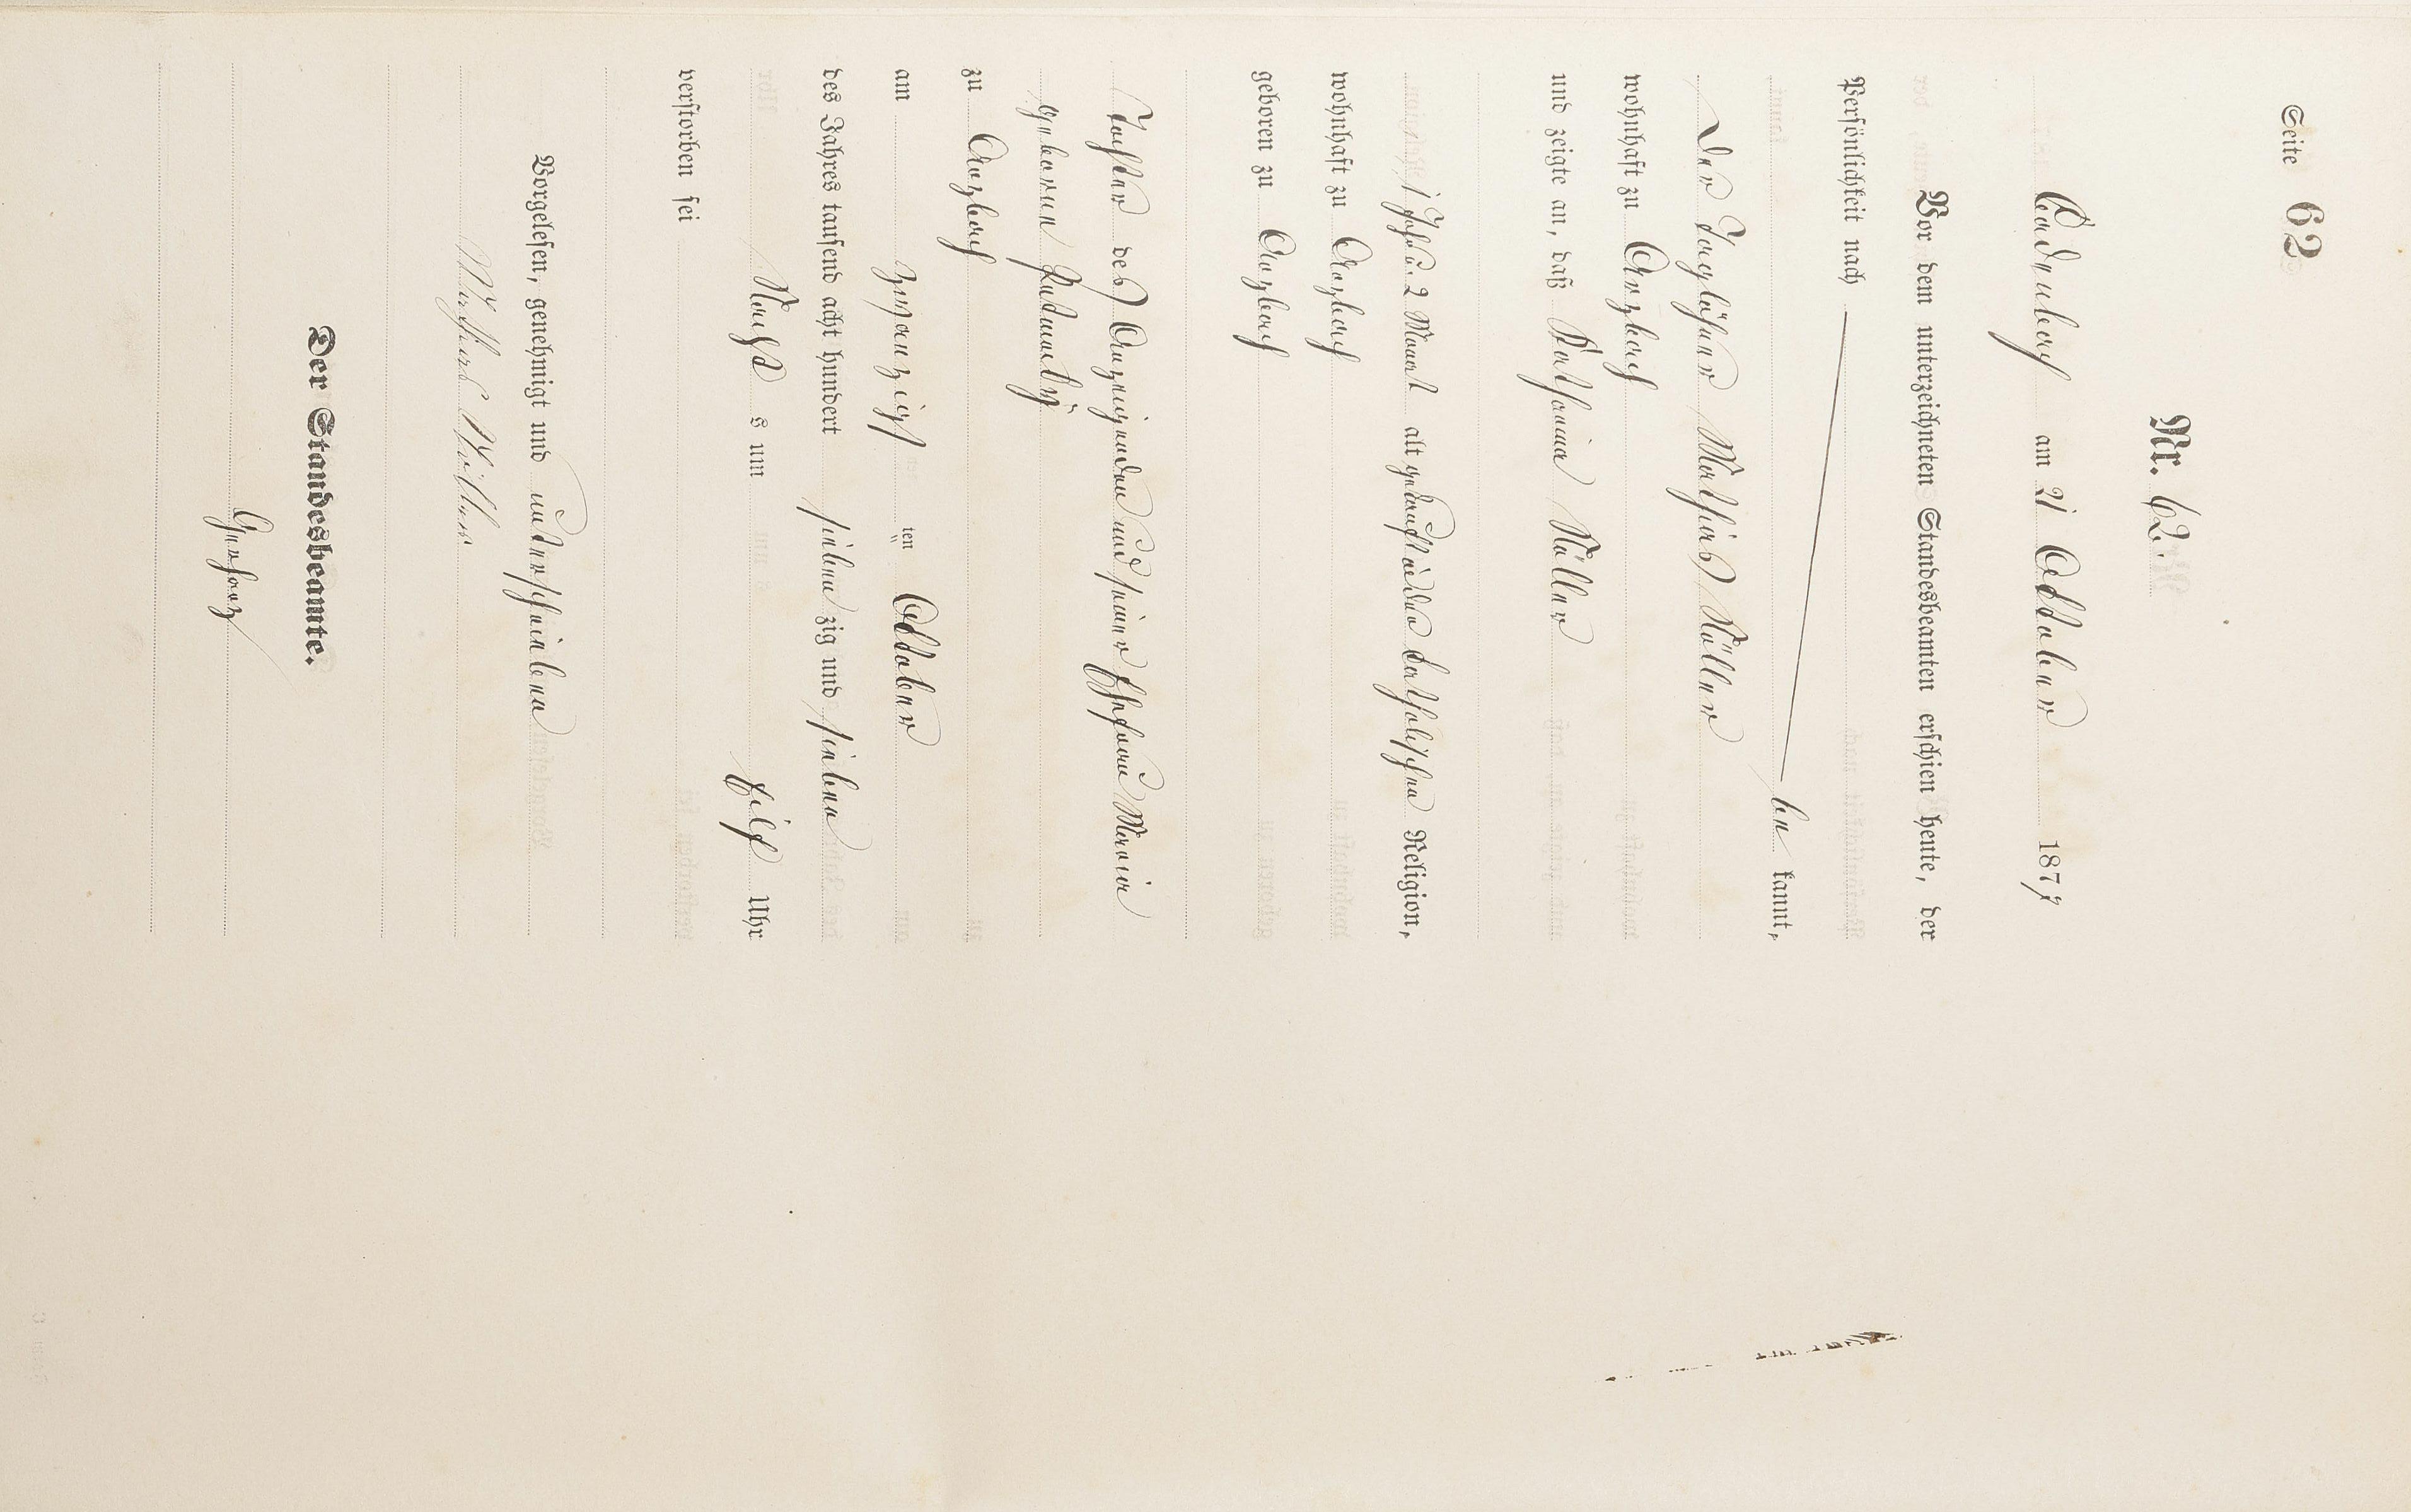 Seite 62
Nr. 62.
Cadenbach am 21 October 1877
Vor dem unterzeichneten Standesbeamten erschien heute, der
Persönlichkeit nach
be kannt,
der Taglöhner Mathias Müller
wohnhaft zu Arzbach
und zeigte an, daß Katharina Müller
1 Jahr u. 2 Monat alt katholischen Religion,
wohnhaft zu Arzbach
geboren zu Arzbach
Tochter des Anzeigenden und seiner Ehefrau Maria
geborene
zu Arzbach
am zwanzigsten ten October
des Jahres tausend acht hundert sieben zig und sieben
Nachts um Uhr
verstorben sei
Vorgelesen, genehmigt und unterschrieben
Mathias Müller
Der Standesbeamte.